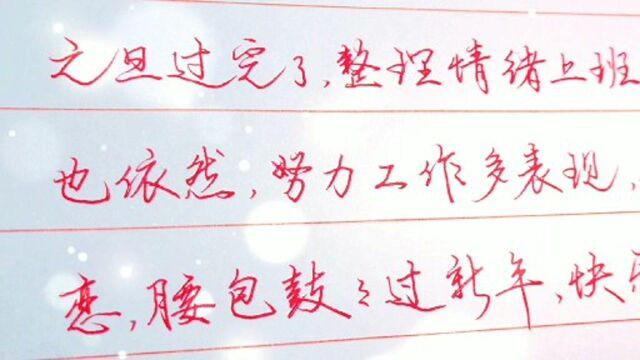 元旦过完了,整理情绪上班
也依然,努力工作多表现,
恋,腰包鼓々过新年,快